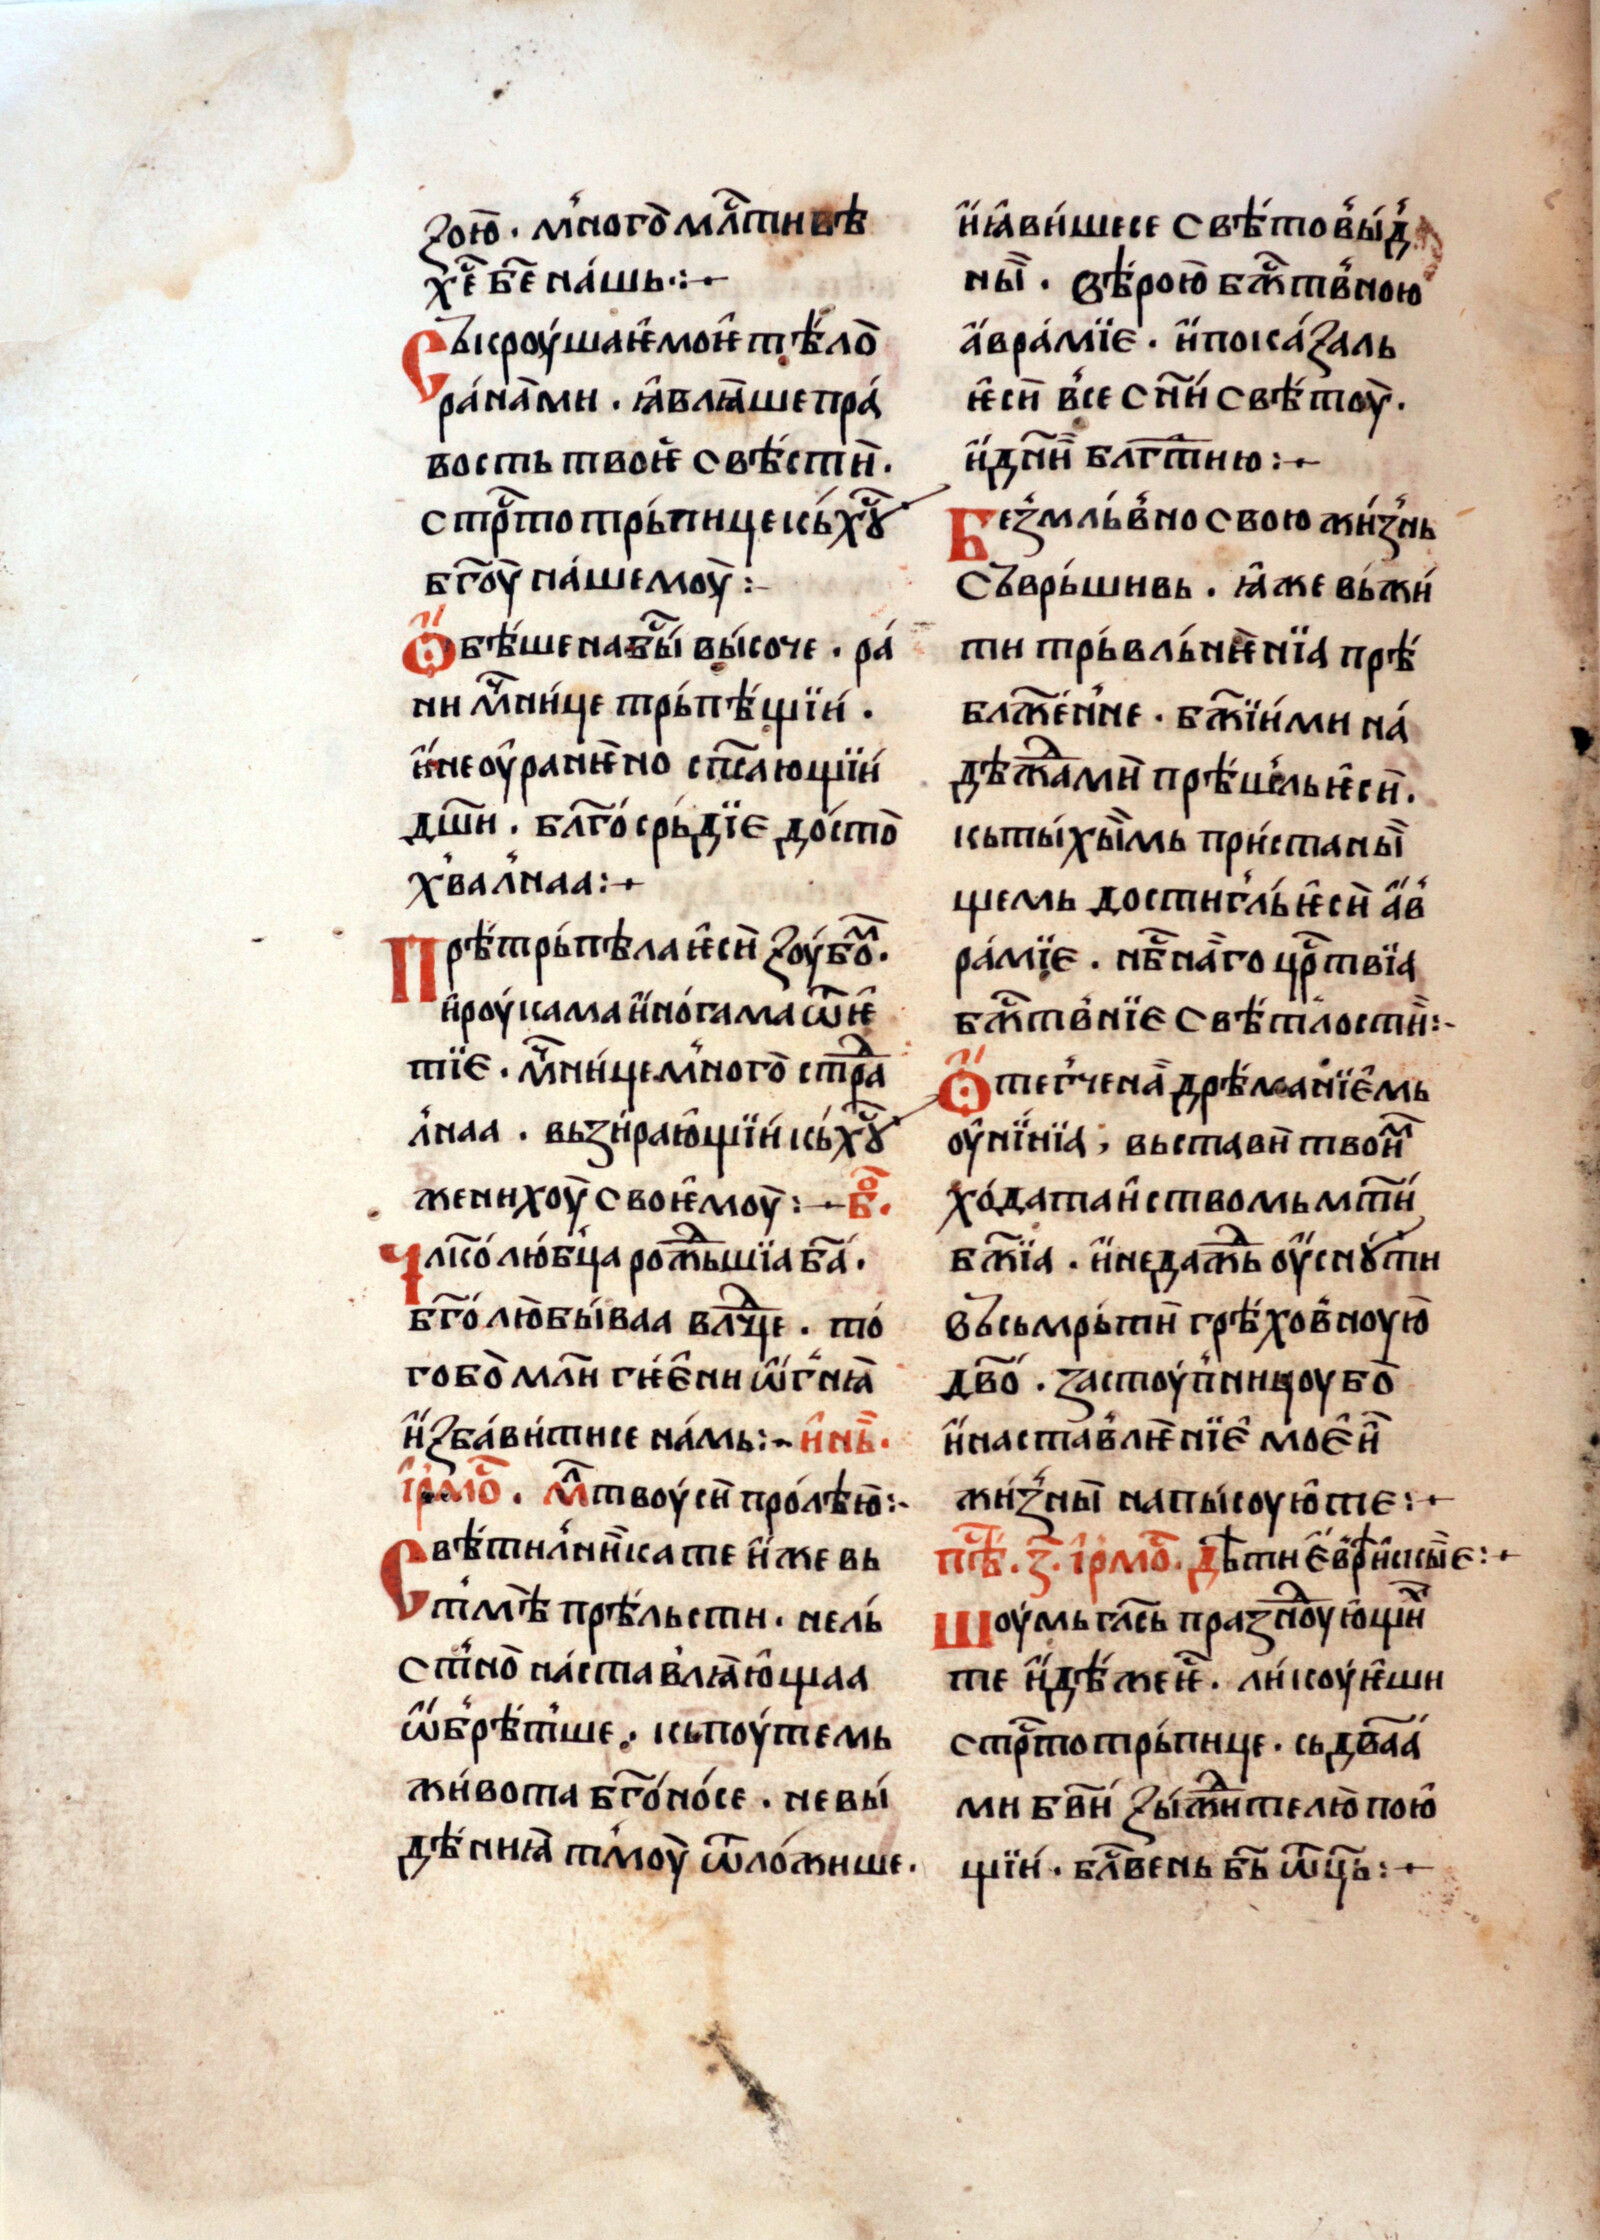 зою̀. мно́го мл҃тивѣ
хе҃ бе҃ на́шь:~
Съкроу́шаѥмоѥ тѣ́ло
ра́нами. ꙗ҆влꙗ́ше пра́
вость твоѥ̀ свѣ́сти.
стрⷭ҇тотрь́пице кь́ хоⷭ҇ꙋ
бг҃оу на́шемоу:~
Ѻ҆бѣ́шена бы́ вы́соче. ра́
ни мч҃ни́це трьпѣ́щїи.
и҆ неоу҆раньѥ́но сп҃сающїи
дш҃и. бл҃го́срь́дїе до́сто
хва́лнаа:~
Прѣтрь́пѣла ѥ҆сѝ зоу́бом̾.
и҆ роу́кама и҆ но́гама ѿѥ҆
тїе. мч҃ни́це мно́го стра
лнаа. вьзи́раю҆щїи кь́ хоⷭ҇ꙋ
женихоу̀ своѥ҆моу̀:~ боⷢ҇.
Чл҃ко́лю́бца рожⷣьшїа ба҃.
бг҃о́лю̀бы́ваа влⷣце. то́
гобо̀ мл҃и гѥ́е҆ни ѡ҆гнꙗ̀
и҆зба́витисе на́мь:~ и҆нь̀.
і҆рмоⷭ҇. мл҃твоу сѝ про́лѣю̀:~
Свѣ́тилни́ка те и҆же вь
тмѣ̀ прѣ́льсти. нель́
стно̀ на́ставлꙗю҆щаа
ѡ҆брѣ́тше. кь поу́темь
жи́вота бг҃о́но́се. невы́
дѣ́ниꙗ̀ тмоу̀ ѿло́жише.
и҆ ꙗ҆ви́шесе свѣ́товы́д
ны̀. вѣ́рою̀ бжⷭ҇твною
а҆вра́мїе. и҆ пока́заль
ѥ҆сѝ все сн҃и́ свѣ́тоу̀.
и҆ дн҃и блгⷣтию:~
Безмль́вно свою жи́знь
съврь́шивь. ꙗ҆же вь жи́
ти трьвль́нѥнїа прѣ́
блаже́нне. бж҃їи́ми на́
дѣждⷣами прѣ́шьль ѥ҆сѝ.
кь ты́хы́мь при́станы̀
щемь достигль́ ѥ҆сѝ а҆в
ра́мїе. нбⷭ҇на́го црⷭ҇твїа
бжⷭ҇твнїе свѣ́тлости:~
Ѻ҆тегче́на дрѣ́манїе҆мь
оу҆ни́нїа, вьстави твои́мⷨ
хо́датаи҆ствомь мт҃и́
бж҃їа. и҆ не даждⷣь оу҆снꙋ́ти
въ сьмрь́ти грѣ́ховноую̀
дв҃о́. застоу́пницоу бо̀
и҆ наста́влѥнїе҆ мое҆и̂
жи́зны̀ на́пы́соую҆те:~
пѣⷭ҇. з҃. і҆рмоⷭ҇. дѣ́ти е҆врѣ́искы́е:~
Шоу́мь гла́сь празⷣноую҆щи́мⷯ
те и҆дѣ́же ѥ̀. ли́коу́ѥши
стрⷭ҇тотрь́пице. сь двⷭ҇аа́
ми бв҃и́ зы́ждⷣителю̀ пою҆
щїи. блⷭ҇вень бь҃ ѿць҃:~